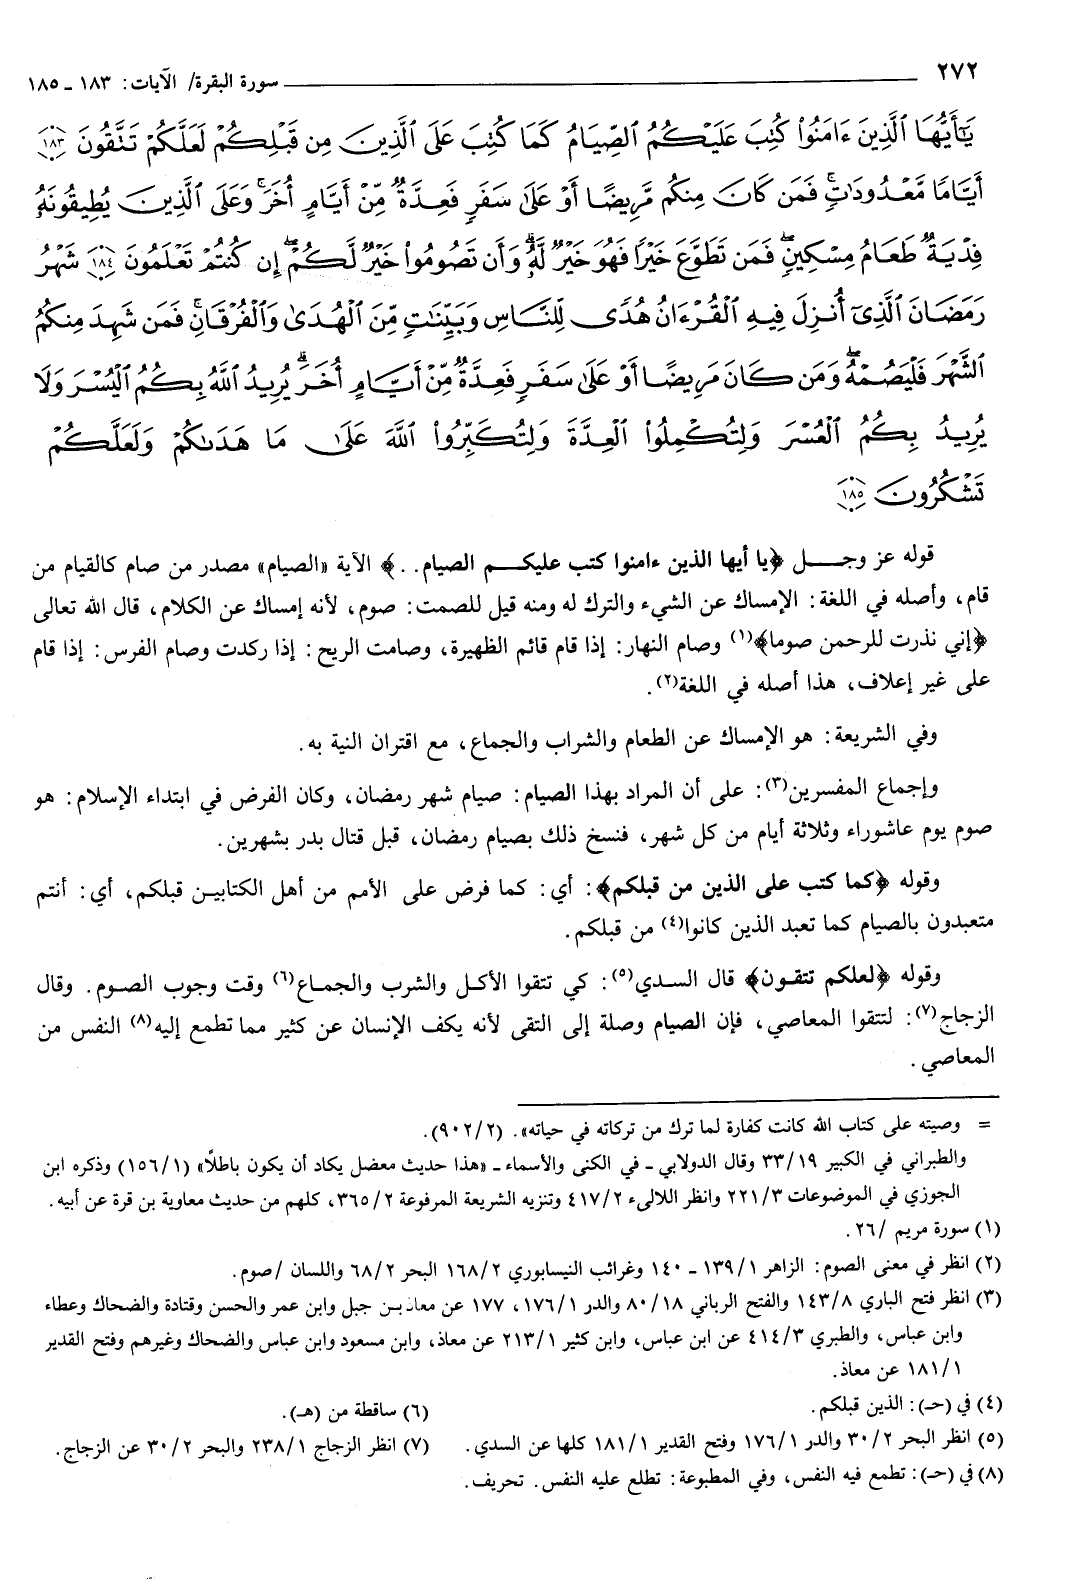 ٢٧٢ سورة البقرة/ الآيات: ١٨٣ ـ ١٨٥
يَٰٓأَيُّهَا ٱلَّذِينَ ءَامَنُواْ كُتِبَ عَلَيۡكُمُ ٱلصِّيَامُ كَمَا كُتِبَ عَلَى ٱلَّذِينَ مِن قَبۡلِكُمۡ لَعَلَّكُمۡ تَتَّقُونَ ١٨٣
أَيَّامٗا مَّعۡدُودَٰتٖۚ فَمَن كَانَ مِنكُم مَّرِيضًا أَوۡ عَلَىٰ سَفَرٖ فَعِدَّةٞ مِّنۡ أَيَّامٍ أُخَرَۚ وَعَلَى ٱلَّذِينَ يُطِيقُونَهُۥ
فِدۡيَةٞ طَعَامُ مِسۡكِينٖۖ فَمَن تَطَوَّعَ خَيۡرٗا فَهُوَ خَيۡرٞ لَّهُۥۚ وَأَن تَصُومُواْ خَيۡرٞ لَّكُمۡۖ إِن كُنتُمۡ تَعۡلَمُونَ ١٨٤ شَهۡرُ
رَمَضَانَ ٱلَّذِيٓ أُنزِلَ فِيهِ ٱلۡقُرۡءَانُ هُدٗى لِّلنَّاسِ وَبَيِّنَٰتٖ مِّنَ ٱلۡهُدَىٰ وَٱلۡفُرۡقَانِۚ فَمَن شَهِدَ مِنكُمُ
ٱلشَّهۡرَ فَلۡيَصُمۡهُۖ وَمَن كَانَ مَرِيضًا أَوۡ عَلَىٰ سَفَرٖ فَعِدَّةٞ مِّنۡ أَيَّامٍ أُخَرَۗ يُرِيدُ ٱللَّهُ بِكُمُ ٱلۡيُسۡرَ وَلَا
يُرِيدُ بِكُمُ ٱلۡعُسۡرَ وَلِتُكۡمِلُواْ ٱلۡعِدَّةَ وَلِتُكَبِّرُواْ ٱللَّهَ عَلَىٰ مَا هَدَىٰكُمۡ وَلَعَلَّكُمۡ
تَشۡكُرُونَ ١٨٥
قوله عز وجل ﴿يا أيها الذين ءامنوا كتب عليكم الصيام. . ﴾ الآية «الصيام» مصدر من صام كالقيام من
قام، وأصله في اللغة: الإمساك عن الشيء والترك له ومنه قيل للصمت: صوم، لأنه إمساك عن الكلام، قال الله تعالى
﴿إني نذرت للرحمن صوما﴾(١) وصام النهار: إذا قام قائم الظهيرة، وصامت الريح: إذا ركدت وصام الفرس: إذا قام
على غير إعلاف، هذا أصله في اللغة(٢).
وفي الشريعة: هو الإمساك عن الطعام والشراب والجماع، مع اقتران النية به.
وإجماع المفسرين(٣): على أن المراد بهذا الصيام: صيام شهر رمضان، وكان الفرض في ابتداء الإسلام: هو
صوم يوم عاشوراء وثلاثة أيام من كل شهر، فنسخ ذلك بصيام رمضان، قبل قتال بدر بشهرين.
وقوله ﴿كما كتب على الذين من قبلكم﴾: أي: كما فرض على الأمم من أهل الكتابين قبلكم، أي: أنتم
متعبدون بالصيام كما تعبد الذين كانوا(٤) من قبلكم.
وقوله ﴿لعلكم تتقون﴾ قال السدي(٥): كي تتقوا الأكل والشرب والجماع(٦) وقت وجوب الصوم. وقال
الزجاج(٧): لتتقوا المعاصي، فإن الصيام وصلة إلى التقى لأنه يكف الإنسان عن كثير مما تطمع إليه(٨) النفس من
المعاصي.
= وصيته على كتاب الله كانت كفارة لما ترك من تركاته في حياته». (٩٠٢/٢).
والطبراني في الكبير ٣٣/١٩ وقال الدولابي ـ في الكنى والأسماء ـ «هذا حديث معضل يكاد أن يكون باطلاً» (١٥٦/١) وذكره ابن
الجوزي في الموضوعات ٢٢١/٣ وانظر اللالىء ٤١٧/٢ وتنزيه الشريعة المرفوعة ٣٦٥/٢، كلهم من حديث معاوية بن قرة عن أبيه.
(١) سورة مريم /٢٦.
(٢) انظر في معنى الصوم: الزاهر ١٣٩/١ ـ ١٤٠ وغرائب النيسابوري ١٦٨/٢ البحر ٦٨/٢ واللسان /صوم.
(٣) انظر فتح الباري ١٤٣/٨ والفتح الرباني ٨٠/١٨ والدر ١٧٦/١، ١٧٧ عن معاذ بن جبل وابن عمر والحسن وقتادة والضحاك وعطاء
وابن عباس، والطبري ٤١٤/٣ عن ابن عباس، وابن كثير ٢١٣/١ عن معاذ، وابن مسعود وابن عباس والضحاك وغيرهم وفتح القدير
١٨١/١ عن معاذ.
(٤) في (حـ): الذين قبلكم. (٦) ساقطة من (هـ).
(٥) انظر البحر ٣٠/٢ والدر ١٧٦/١ وفتح القدير ١٨١/١ كلها عن السدي. (٧) انظر الزجاج ٢٣٨/١ والبحر ٣٠/٢ عن الزجاج.
(٨) في (حـ): تطمع فيه النفس، وفي المطبوعة: تطلع عليه النفس. تحريف.